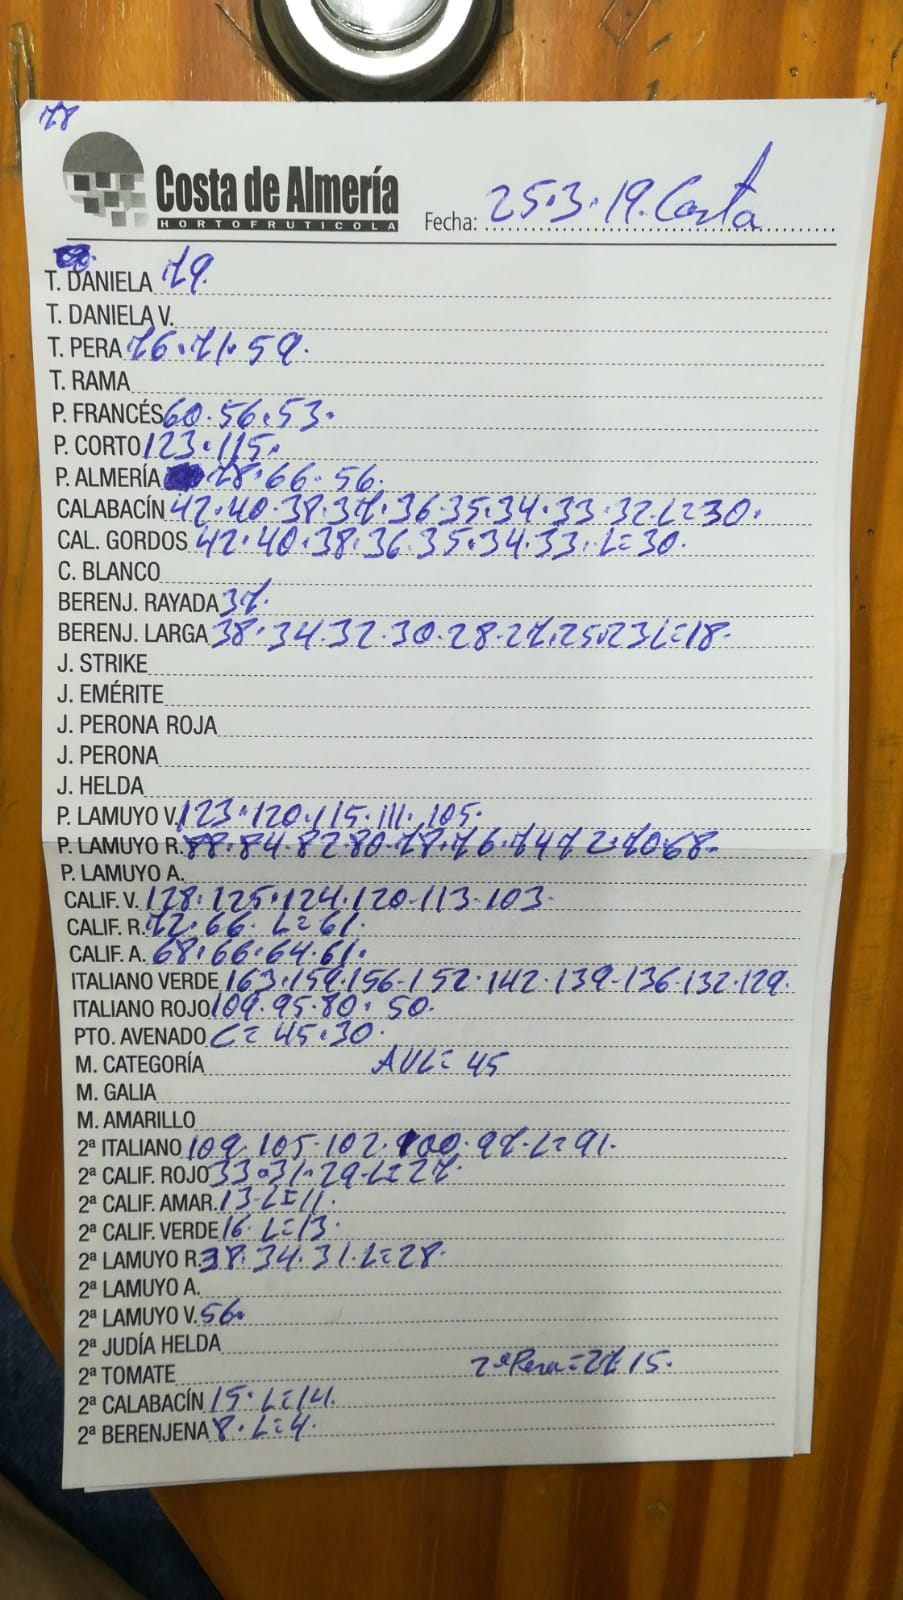 78
Costa de Almería
HORTOFRUTICOLA
Fecha: 25.3.19. Costa
T. DANIELA 79.
T. DANIELA V.
T. PERA 76.71.59.
T. RAMA
P. FRANCÉS 60.56.53.
P. CORTO 123.115.
P. ALMERÍA 78.66.56.
CALABACÍN 42.40.38.37.36.35.34.33.32.L=30.
CAL. GORDOS 42.40.38.36.35.34.33.L=30.
C. BLANCO
BERENJ. RAYADA 37.
BERENJ. LARGA 38.34.32.30.28.27.25.23 L=18.
J. STRIKE
J. EMÉRITE
J. PERONA ROJA
J. PERONA
J. HELDA
P. LAMUYO V. 123.120.115.111.105.
P. LAMUYO R. 88.84.82.80.78.76.74.72.70.68.
P. LAMUYO A.
CALIF. V. 128.125.124.120.113.103.
CALIF. R. 72.66. L=61.
CALIF. A. 68.66.64.61.
ITALIANO VERDE 163.159.156-152.142.139-136.132.129.
ITALIANO ROJO 109.95.80.50.
PTO. AVENADO C=45.30.
M. CATEGORÍA AVL=45
M. GALIA
M. AMARILLO
2ª ITALIANO 109.105-102.100.97-L=91.
2ª CALIF. ROJO 33.31.29-L=27.
2ª CALIF. AMAR. 13-L=11.
2ª CALIF. VERDE 16. L=13.
2ª LAMUYO R. 38.34.31.L=28.
2ª LAMUYO A.
2ª LAMUYO V. 56.
2ª JUDÍA HELDA
2ª TOMATE 2ª Pera=27.15.
2ª CALABACÍN 15. L=14.
2ª BERENJENA 8. L=4.